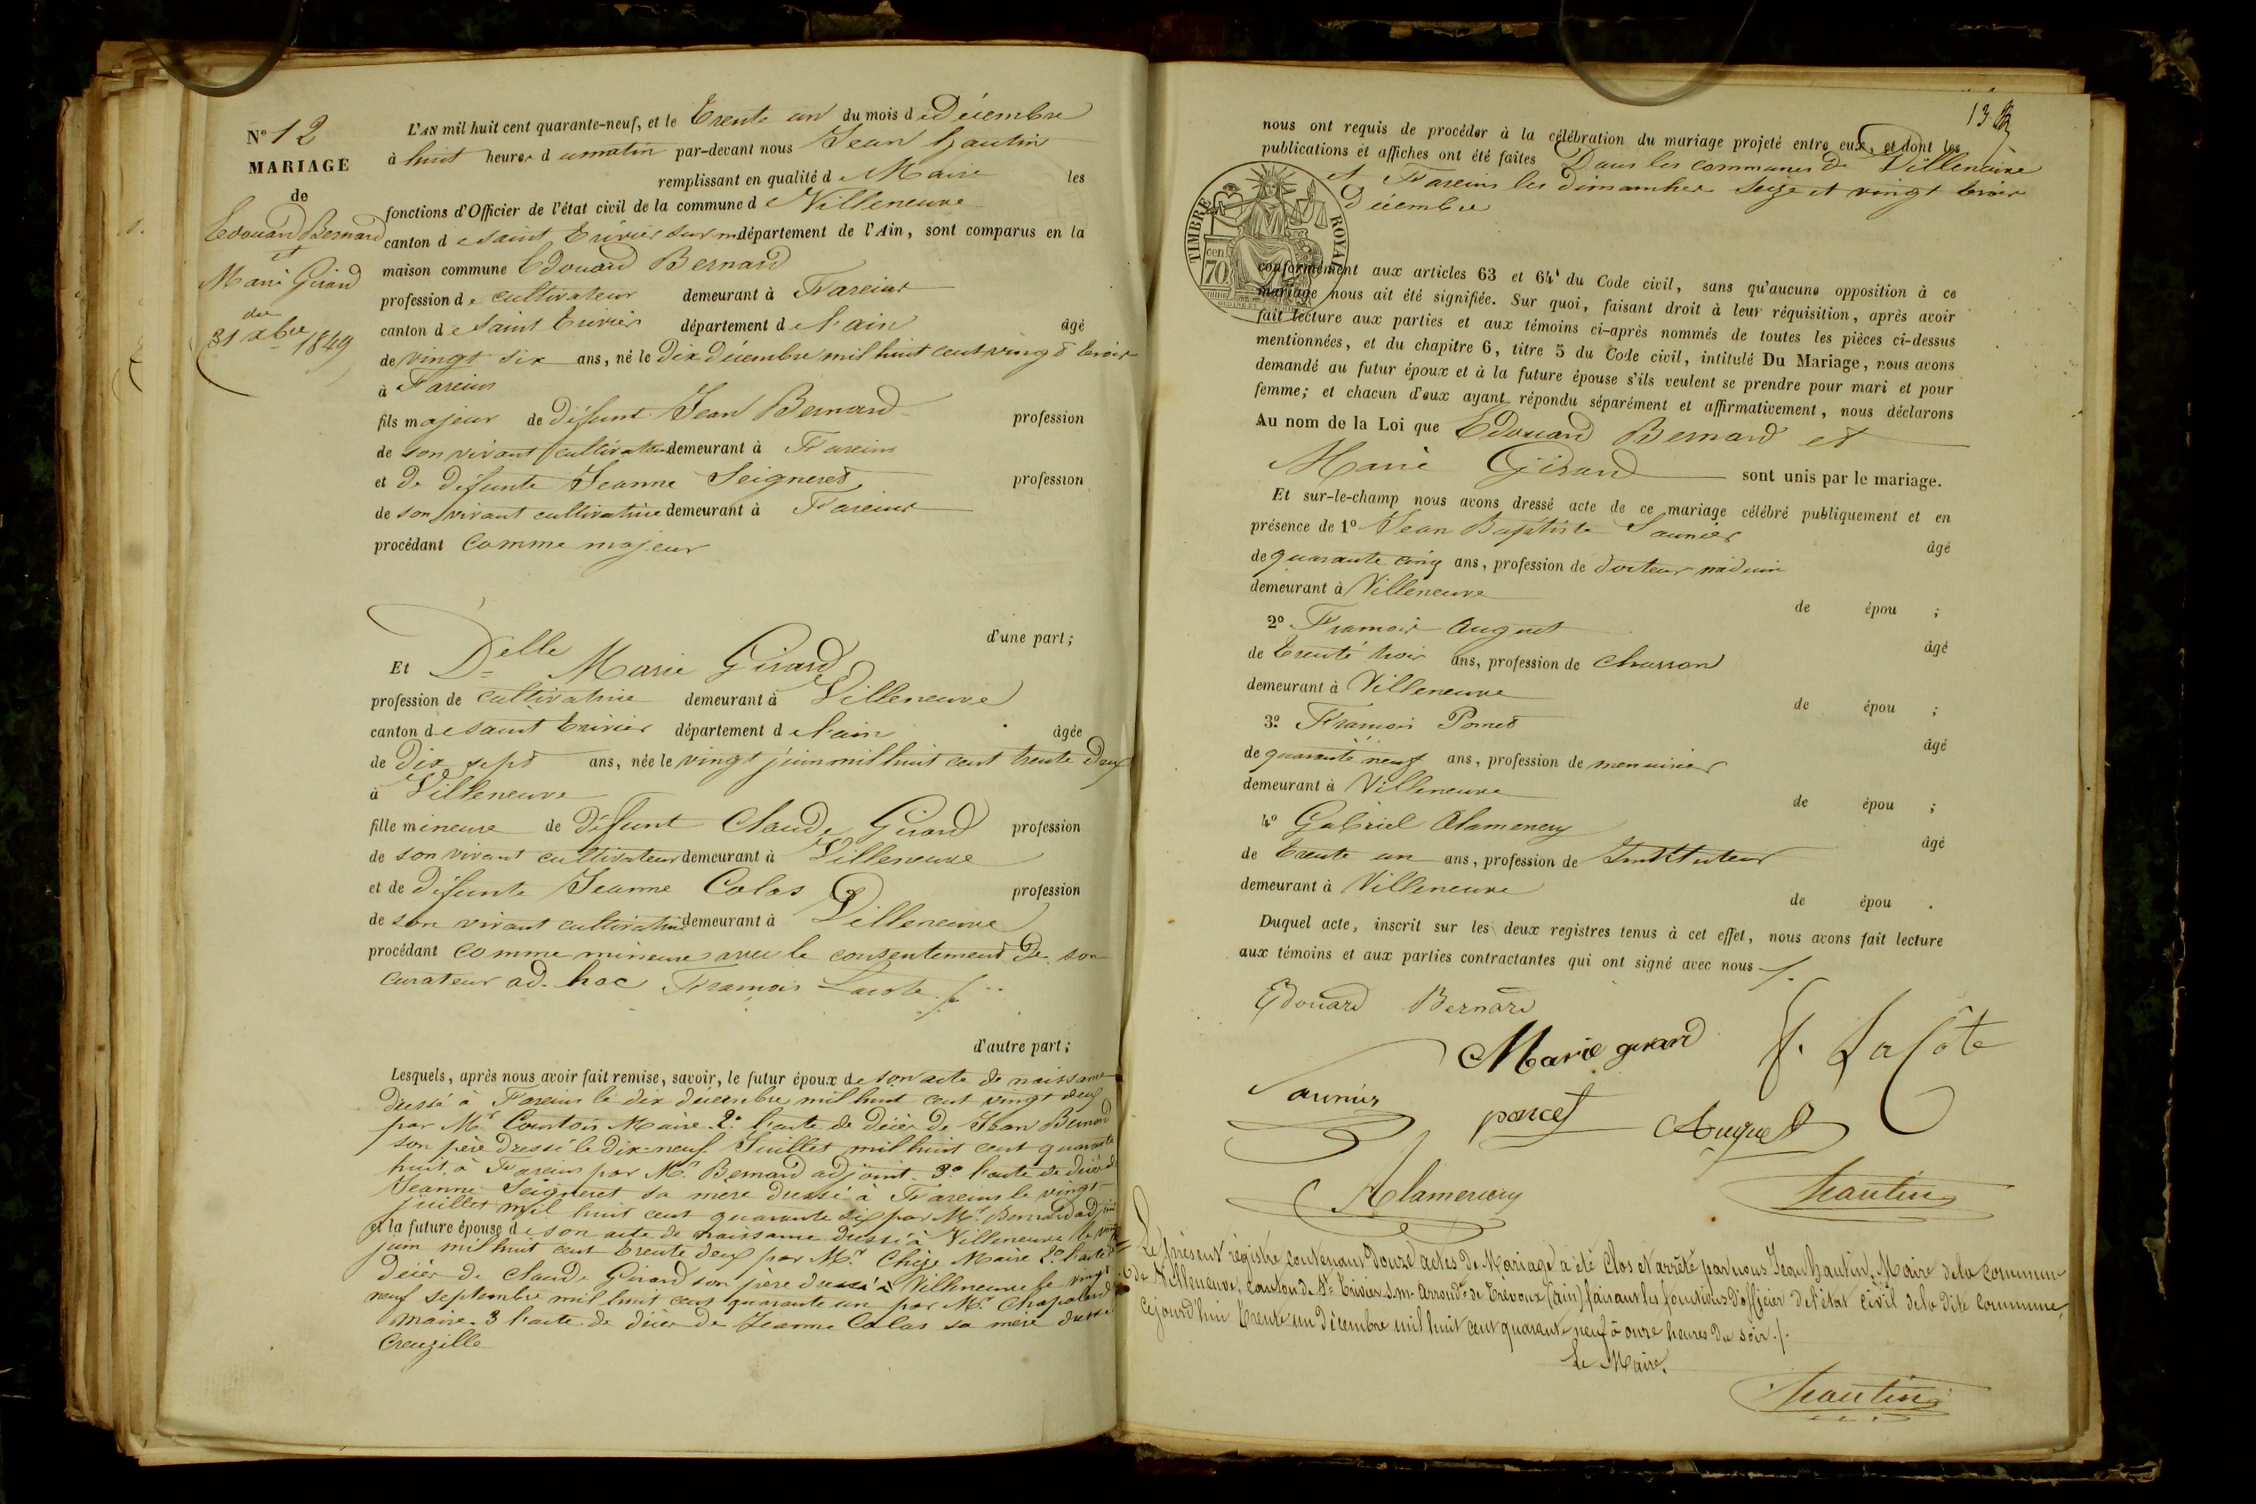 N° 12
MARIAGE
de
Edouard Bernard
et
Marie Girard
du
31 Xbre 1849
L'AN mil huit cent quarante-neuf, et le Trente un du mois de Décembre
à huit heures du matin par-devant nous Jean Hautin
remplissant en qualité de Maire les
fonctions d'Officier de l'état civil de la commune de Villeneuve
canton de saint Trivier sur m. département de l'Ain, sont comparus en la
maison commune Edouard Bernard
profession de cultivateur demeurant à Fareins
canton de saint Trivier département de l'ain âgé
de vingt six ans, né le Dix Décembre mil huit cent vingt trois
à Fareins
fils majeur de défunt Jean Bernard profession
de son vivant cultivateur demeurant à Fareins
et de défunte Jeanne Seigneret profession
de son vivant cultivatrice demeurant à Fareins
procédant comme majeur
d'une part;
Et Delle Marie Girard
profession de cultivatrice demeurant à Villeneuve
canton de saint Trivier département de l'ain âgée
de dix sept ans, née le vingt juin mil huit cent trente deux
à Villeneuve
fille mineure de défunt Claude Girard profession
de son vivant cultivateur demeurant à Villeneuve
et de défunte Jeanne Colas profession
de son vivant cultivatrice demeurant à Villeneuve
procédant comme mineure avec le consentement de son
curateur ad. hoc François Lacote ./.
d'autre part;
Lesquels, après nous avoir fait remise, savoir, le futur époux de son acte de naissance
dressé à Fareins le dix décembre mil huit cent vingt deux
par Mr Courtois Maire. 2° l'acte de décès de Jean Bernard
son père dressé le Dix-neuf Juillet mil huit cent quarante
huit à Fareins par Mr Bernard adjoint. 3° l'acte de décès de
Jeanne Seigneret sa mère dressé à Fareins le vingt
juillet mil huit cent quarante six par Mr Bernard adjoint
et la future épouse de son acte de naissance dressé à Villeneuve le vingt
juin mil huit cent trente deux par Mr Maire 2° l'acte de
décès de Claude Girard son père dressé à Villeneuve le vingt
neuf septembre mil huit cent quarante un par Mr
Maire. 3 l'acte de décès de Jeanne Colas sa mère dressé
13
nous ont requis de procéder à la célébration du mariage projeté entre eux, et dont les
publications et affiches ont été faites Dans les communes de Villeneuve
et Fareins les dimanches seize et vingt trois
Décembre
TIMBRE ROYAL
70 cen.
conformément aux articles 63 et 64 du Code civil, sans qu'aucune opposition à ce
mariage nous ait été signifiée. Sur quoi, faisant droit à leur réquisition, après avoir
fait lecture aux parties et aux témoins ci-après nommés de toutes les pièces ci-dessus
mentionnées, et du chapitre 6, titre 5 du Code civil, intitulé Du Mariage, nous avons
demandé au futur époux et à la future épouse s'ils veulent se prendre pour mari et pour
femme; et chacun d'eux ayant répondu séparément et affirmativement, nous déclarons
Au nom de la Loi que Edouard Bernard et
Marie Girard sont unis par le mariage.
Et sur-le-champ nous avons dressé acte de ce mariage célébré publiquement et en
présence de 1° Jean Baptiste Saunier âgé
de quarante cinq ans, profession de docteur médecin
demeurant à Villeneuve de épou ;
2° François Auguet âgé
de Trente trois ans, profession de charron
demeurant à Villeneuve de épou ;
3° François Poncet âgé
de quarante neuf ans, profession de menuisier
demeurant à Villeneuve de épou ;
4° Gabriel Alamercery âgé
de Trente un ans, profession de Instituteur
demeurant à Villeneuve de épou .
Duquel acte, inscrit sur les deux registres tenus à cet effet, nous avons fait lecture
aux témoins et aux parties contractantes qui ont signé avec nous ./.
Edouard Bernard
Marie girard F. LaCôte
Saunier poncet Auguet
Alamercery hautin
Le présent régistre contenant douze actes de Mariage a été clos et arrêté par nous Jean Hautin, Maire de la commune
de Villeneuve, canton de St Trivier s. m. arrondt de Trévoux (ain) faisant les fonctions d'officier de l'état civil de la dite commune,
cejourd'hui trente un décembre mil huit cent quarante neuf à onze heures du soir ./.
Le Maire,
hautin